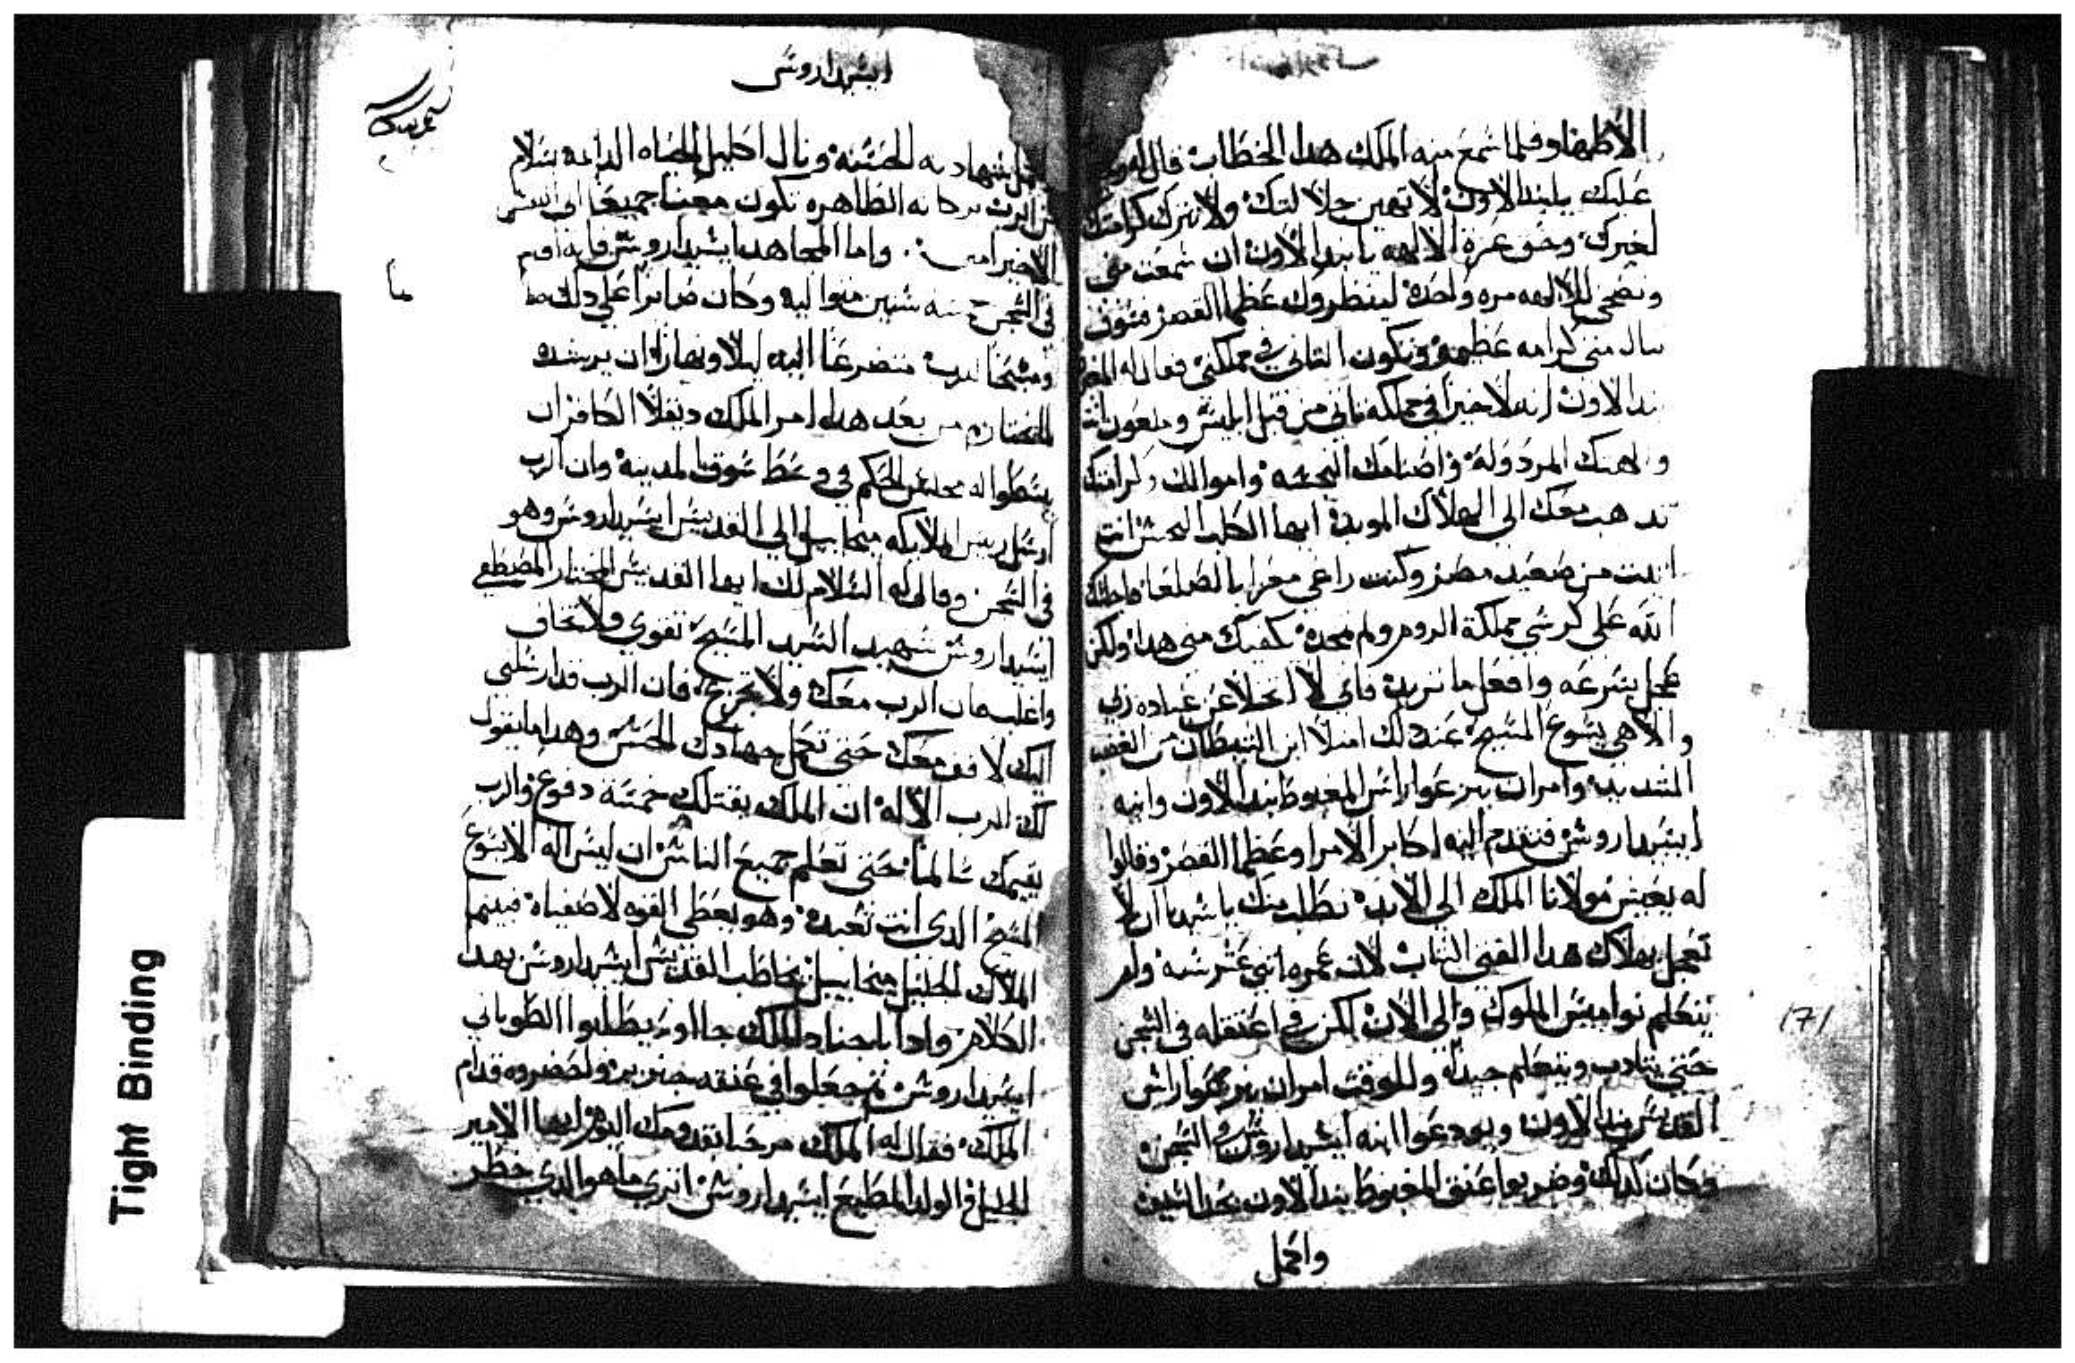 الاطهار فلما سمع منه الملك هدا الخطاب قال له
عليك يابندالاون لا تهين جلالتك ولا تترك كرامتك
لغيرك وحق عزة الالهه يابندالاون ان سمعت مني
وتضحي للالهه مره واحدة لينظروك عظما القصر فسوف
تنال مني كرامه عظيمة وتكون التاني في مملكتي فقال له
بندالاون انه لاخير في مملكه تاتي من قبل ابليس وملعون انت
والهتك المردوله واصنامك النجسه واموالك وكرامتك
تدهب معك الى الهلاك الموبدة ايها الكلب النجس انت
اتيت من صعيد مصر وكنت راعي معزا بالصلعا فاجلسك
الله على كرسي مملكة الروم ولم تمجده يكفيك مني هدا ولكن
عجل بسرعه وافعل ما تريد فاني لا اتخلا عن عباده ربي
والاهي يسوع المسيح عند دلك امتلا ابن الشيطان من الغضب
الشديد وامر ان ينزعوا راس المغبوط بندالاون وابنه
ابسداروس فتقدم اليه اكابر الامرا وعظما القصر وقالوا
له يعيش مولانا الملك الي الابد نطلب منك ياسيدنا ان لا
تعجل بهلاك هدا الفتى الشاب لان عمره اتني عشر سنه ولم
يتعلم نواميس الملوك والى الان لكن اعتقله في السجن
حتي يتادب ويتعلم جيدا وللوقت امر ان ينزعوا راس
القديس بندالاون ويودعوا ابنه ابسداروس في السجن
وكان كدلك وضربوا عنق المغبوط بندالاون بحد السيف
واكمل
171
ابسداروس
واكمل شهادته الحسنه ونال اكليل الحياه الدايمه بسلام
من الرب بركاته الطاهره تكون معنا جميعا الى النفس
الاخير امين واما المجاهد ابسداروس فانه اقام
في السجن خمسه سنين متواليه وكان صابرا على دلك
ومسبحا للرب متضرعا اليه ليلا ونهارا ان يرشده
من بعد هدا امر الملك دقلا الكافر ان
ينصبوا له مجلس الحكم في وسط سوق المدينه وان الرب
ارسل ريس الملايكه ميخاييل الى القديس ابسداروس وهو
في السجن وقال له السلام لك ايها القديس المختار المصطفى
ابسداروس شهيد السيد المسيح تقوي ولا تخاف
واغلب فان الرب معك ولا تجزع فان الرب قد ارسلني
اليك لاقف معك حتى تكمل جهادك الحسن وهدا ما يقول
لك الرب الاله ان الملك يقتلك خمسه دفوع والرب
يقيمك سالما حتي تعلم جميع الناس ان ليس اله الا يسوع
المسيح الدي انت تعبده وهو يعطي القوه لاصفياه فبينما
الملاك الجليل ميخاييل يخاطب القديس ابسداروس بهدا
الكلام وادا باجناد الملك جااوا يطلبوا الطوباني
ابسداروس تم جعلوا في عنقه جنزير واحضروه قدام
الملك فقال له الملك مرحبا بقدومك اليوم ايها الامير
الجليل والولد المطيع ابسداروس اتري ما هو الدي خطر